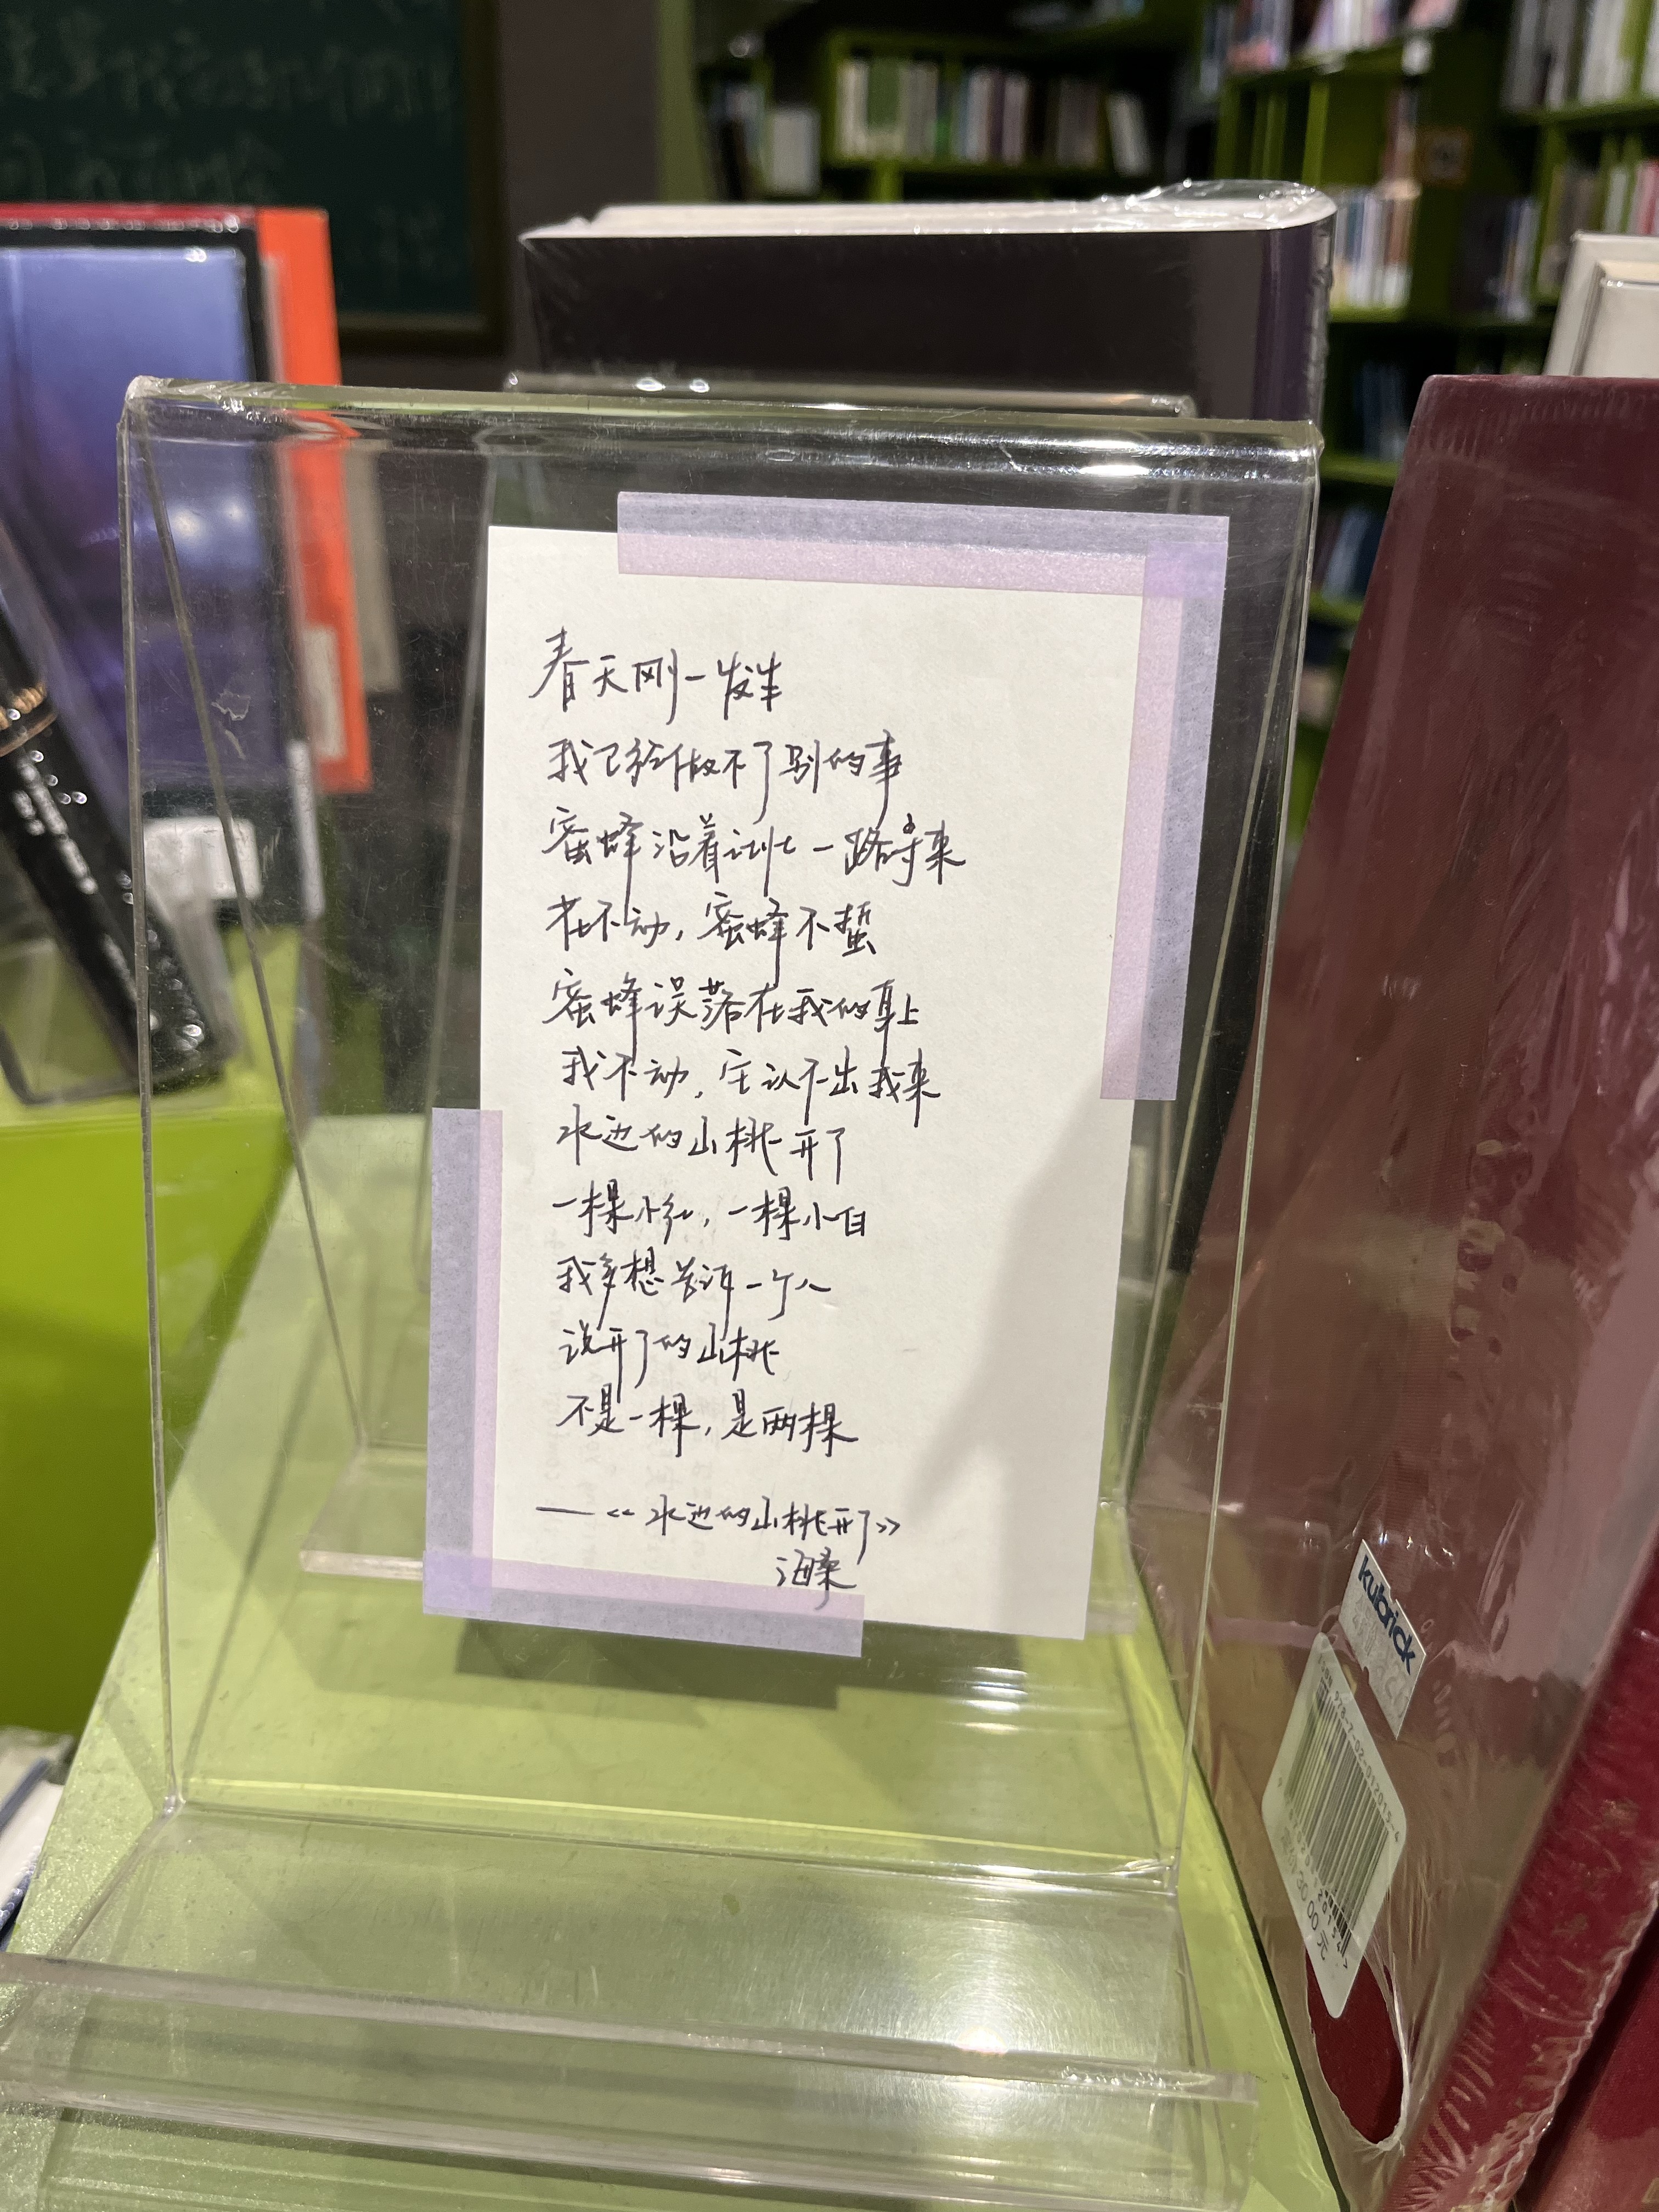 春天刚一发生
我已经做不了别的事
蜜蜂沿着一路寻来
花不动，蜜蜂不蜇
蜜蜂误落在我的身上
我不动，它认不出我来
水边的山桃开了
一棵小红，一棵小白
我多想告诉一个人
说开了的山桃
不是一棵，是两棵
——《水边的山桃开了》
海桑
kubrick
978-7-02-012015-4